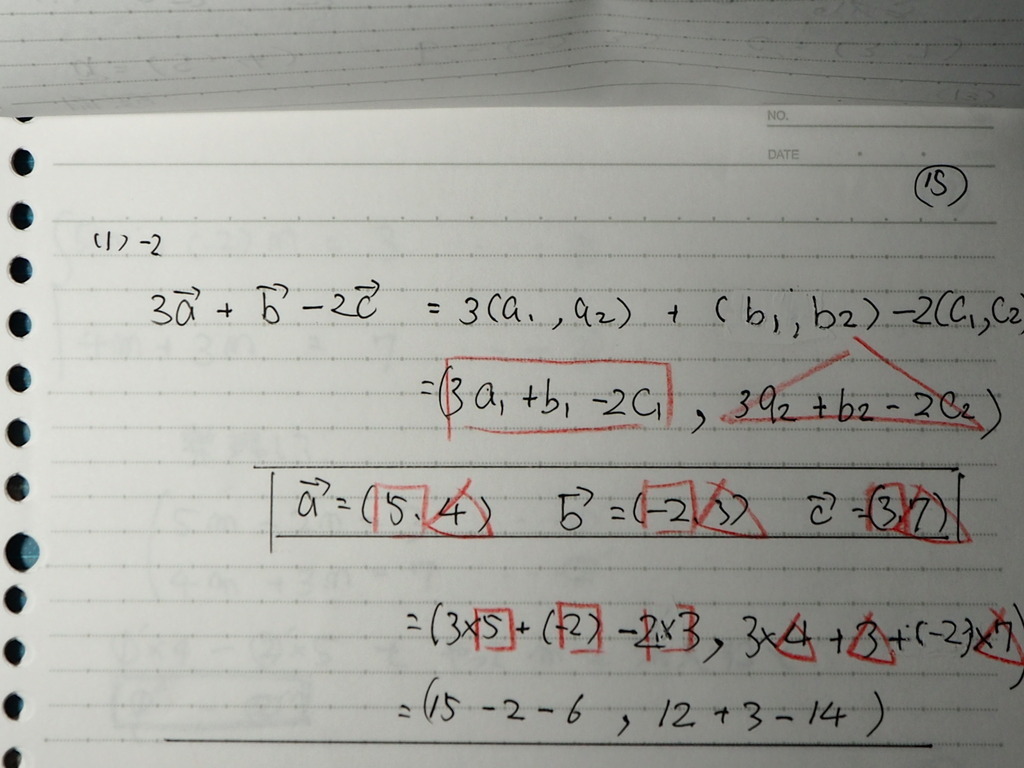 NO.
DATE
⑮
(1)-2
3a⃗ + b⃗ - 2c⃗ = 3(a₁, a₂) + (b₁, b₂) - 2(c₁, c₂
= (3a₁ + b₁ - 2c₁, 3a₂ + b₂ - 2c₂)
a⃗ = (5, 4) b⃗ = (-2, 3) c⃗ = (3, 7)
= (3×5 + (-2) - 2×3, 3×4 + 3 + (-2)×7)
= (15 - 2 - 6, 12 + 3 - 14)